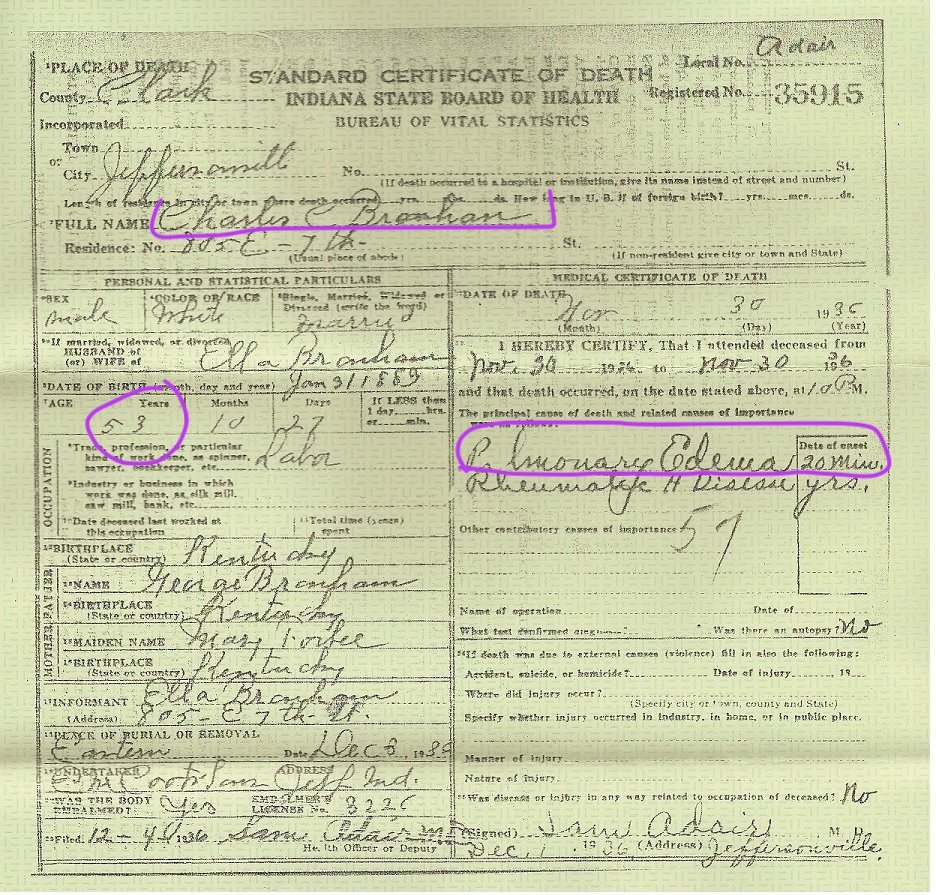 Adair
¹PLACE OF DEATH
STANDARD CERTIFICATE OF DEATH
Local No.
County Clark
INDIANA STATE BOARD OF HEALTH
Registered No. 35915
Incorporated
BUREAU OF VITAL STATISTICS
Town
or
City Jeffersonvill No. St.
(If death occurred in a hospital or institution, give its name instead of street and number)
Length of residence in city or town where death occurred yrs. mos. ds. How long in U. S. if of foreign birth? yrs. mos. ds.
²FULL NAME Charles C Branham
Residence: No. 805 E - 7th - St.
(Usual place of abode) (If non-resident give city or town and State)
PERSONAL AND STATISTICAL PARTICULARS
³SEX ⁴COLOR OR RACE ⁵Single, Married, Widowed or
Divorced (write the word)
male White married
If married, widowed, or divorced
HUSBAND of
(or) WIFE of Ella Branham
DATE OF BIRTH (month, day and year) Jan 3 1889
⁷AGE Years Months Days If LESS than
1 day, hrs.
or min.
53 10 27
OCCUPATION
Trade, profession, or particular
kind of work done, as spinner,
sawyer, bookkeeper, etc. Labor
Industry or business in which
work was done, as silk mill,
saw mill, bank, etc.
Date deceased last worked at
this occupation
Total time (years)
spent
BIRTHPLACE
(State or country) Kentucky
FATHER
NAME George Branham
BIRTHPLACE
(State or country) Kentucky
MOTHER
MAIDEN NAME Mary
BIRTHPLACE
(State or country) Kentucky
INFORMANT Ella Branham
(Address) 805 - E 7th St.
PLACE OF BURIAL OR REMOVAL
Eastern Date Dec 3, 193
UNDERTAKER ADDRESS
Jeff Ind.
WAS THE BODY
EMBALMED? Yes EMBALMER'S
LICENSE No.
Filed 12 - 4 1936 Sam Adair M.D.
Health Officer or Deputy
MEDICAL CERTIFICATE OF DEATH
DATE OF DEATH Nov 30 1936
(Month) (Day) (Year)
I HEREBY CERTIFY, That I attended deceased from
Nov. 30 1936 to Nov 30 1936
and that death occurred, on the date stated above, at M.
The principal cause of death and related causes of importance
were as follows:
Date of onset
Pulmonary Edema 20 Min.
Rheumatic H Disease yrs.
Other contributory causes of importance
57
Name of operation Date of
What test confirmed diagnosis? Was there an autopsy? No
If death was due to external causes (violence) fill in also the following:
Accident, suicide, or homicide? Date of injury 19
Where did injury occur?
(Specify city or town, county and State)
Specify whether injury occurred in industry, in home, or in public place.
Manner of injury
Nature of injury
Was disease or injury in any way related to occupation of deceased? No
(Signed) Sam Adair M. D.
Dec. 1 1936 (Address) Jeffersonville.